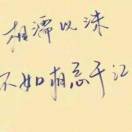 相濡以沫
不如相忘于江